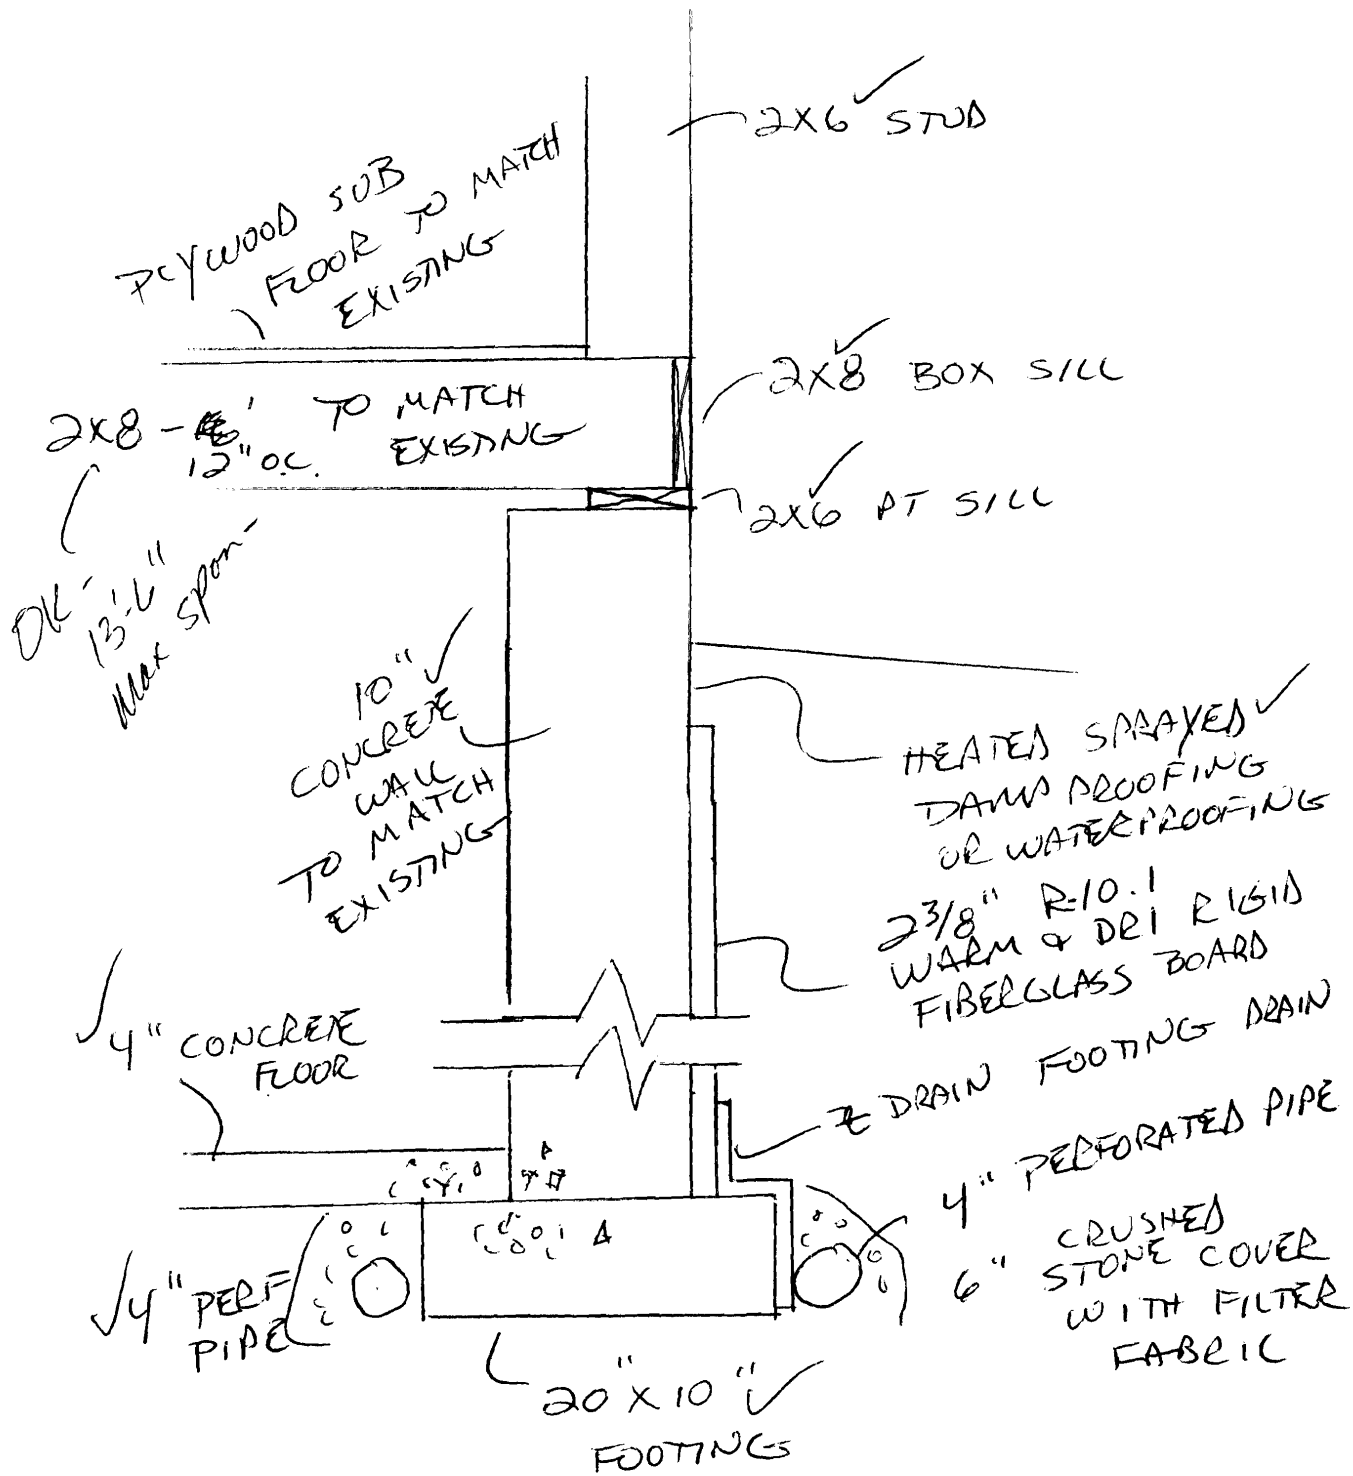 2X6 STUD
PLYWOOD SUB
FLOOR TO MATCH
EXISTING
2X8 BOX SILL
2X8 - TO MATCH
EXISTING
12" O.C.
2X6 PT SILL
OK -
13'-6"
Max span -
10"
CONCRETE
WALL
TO MATCH
EXISTING
HEATED SPRAYED
DAMP PROOFING
OR WATERPROOFING
2 3/8" R-10.1
WARM & DRI RIGID
FIBERGLASS BOARD
4" CONCRETE
FLOOR
DRAIN FOOTING DRAIN
4" PERFORATED PIPE
6" CRUSHED
STONE COVER
WITH FILTER
FABRIC
4" PERF
PIPE
20" X 10"
FOOTING